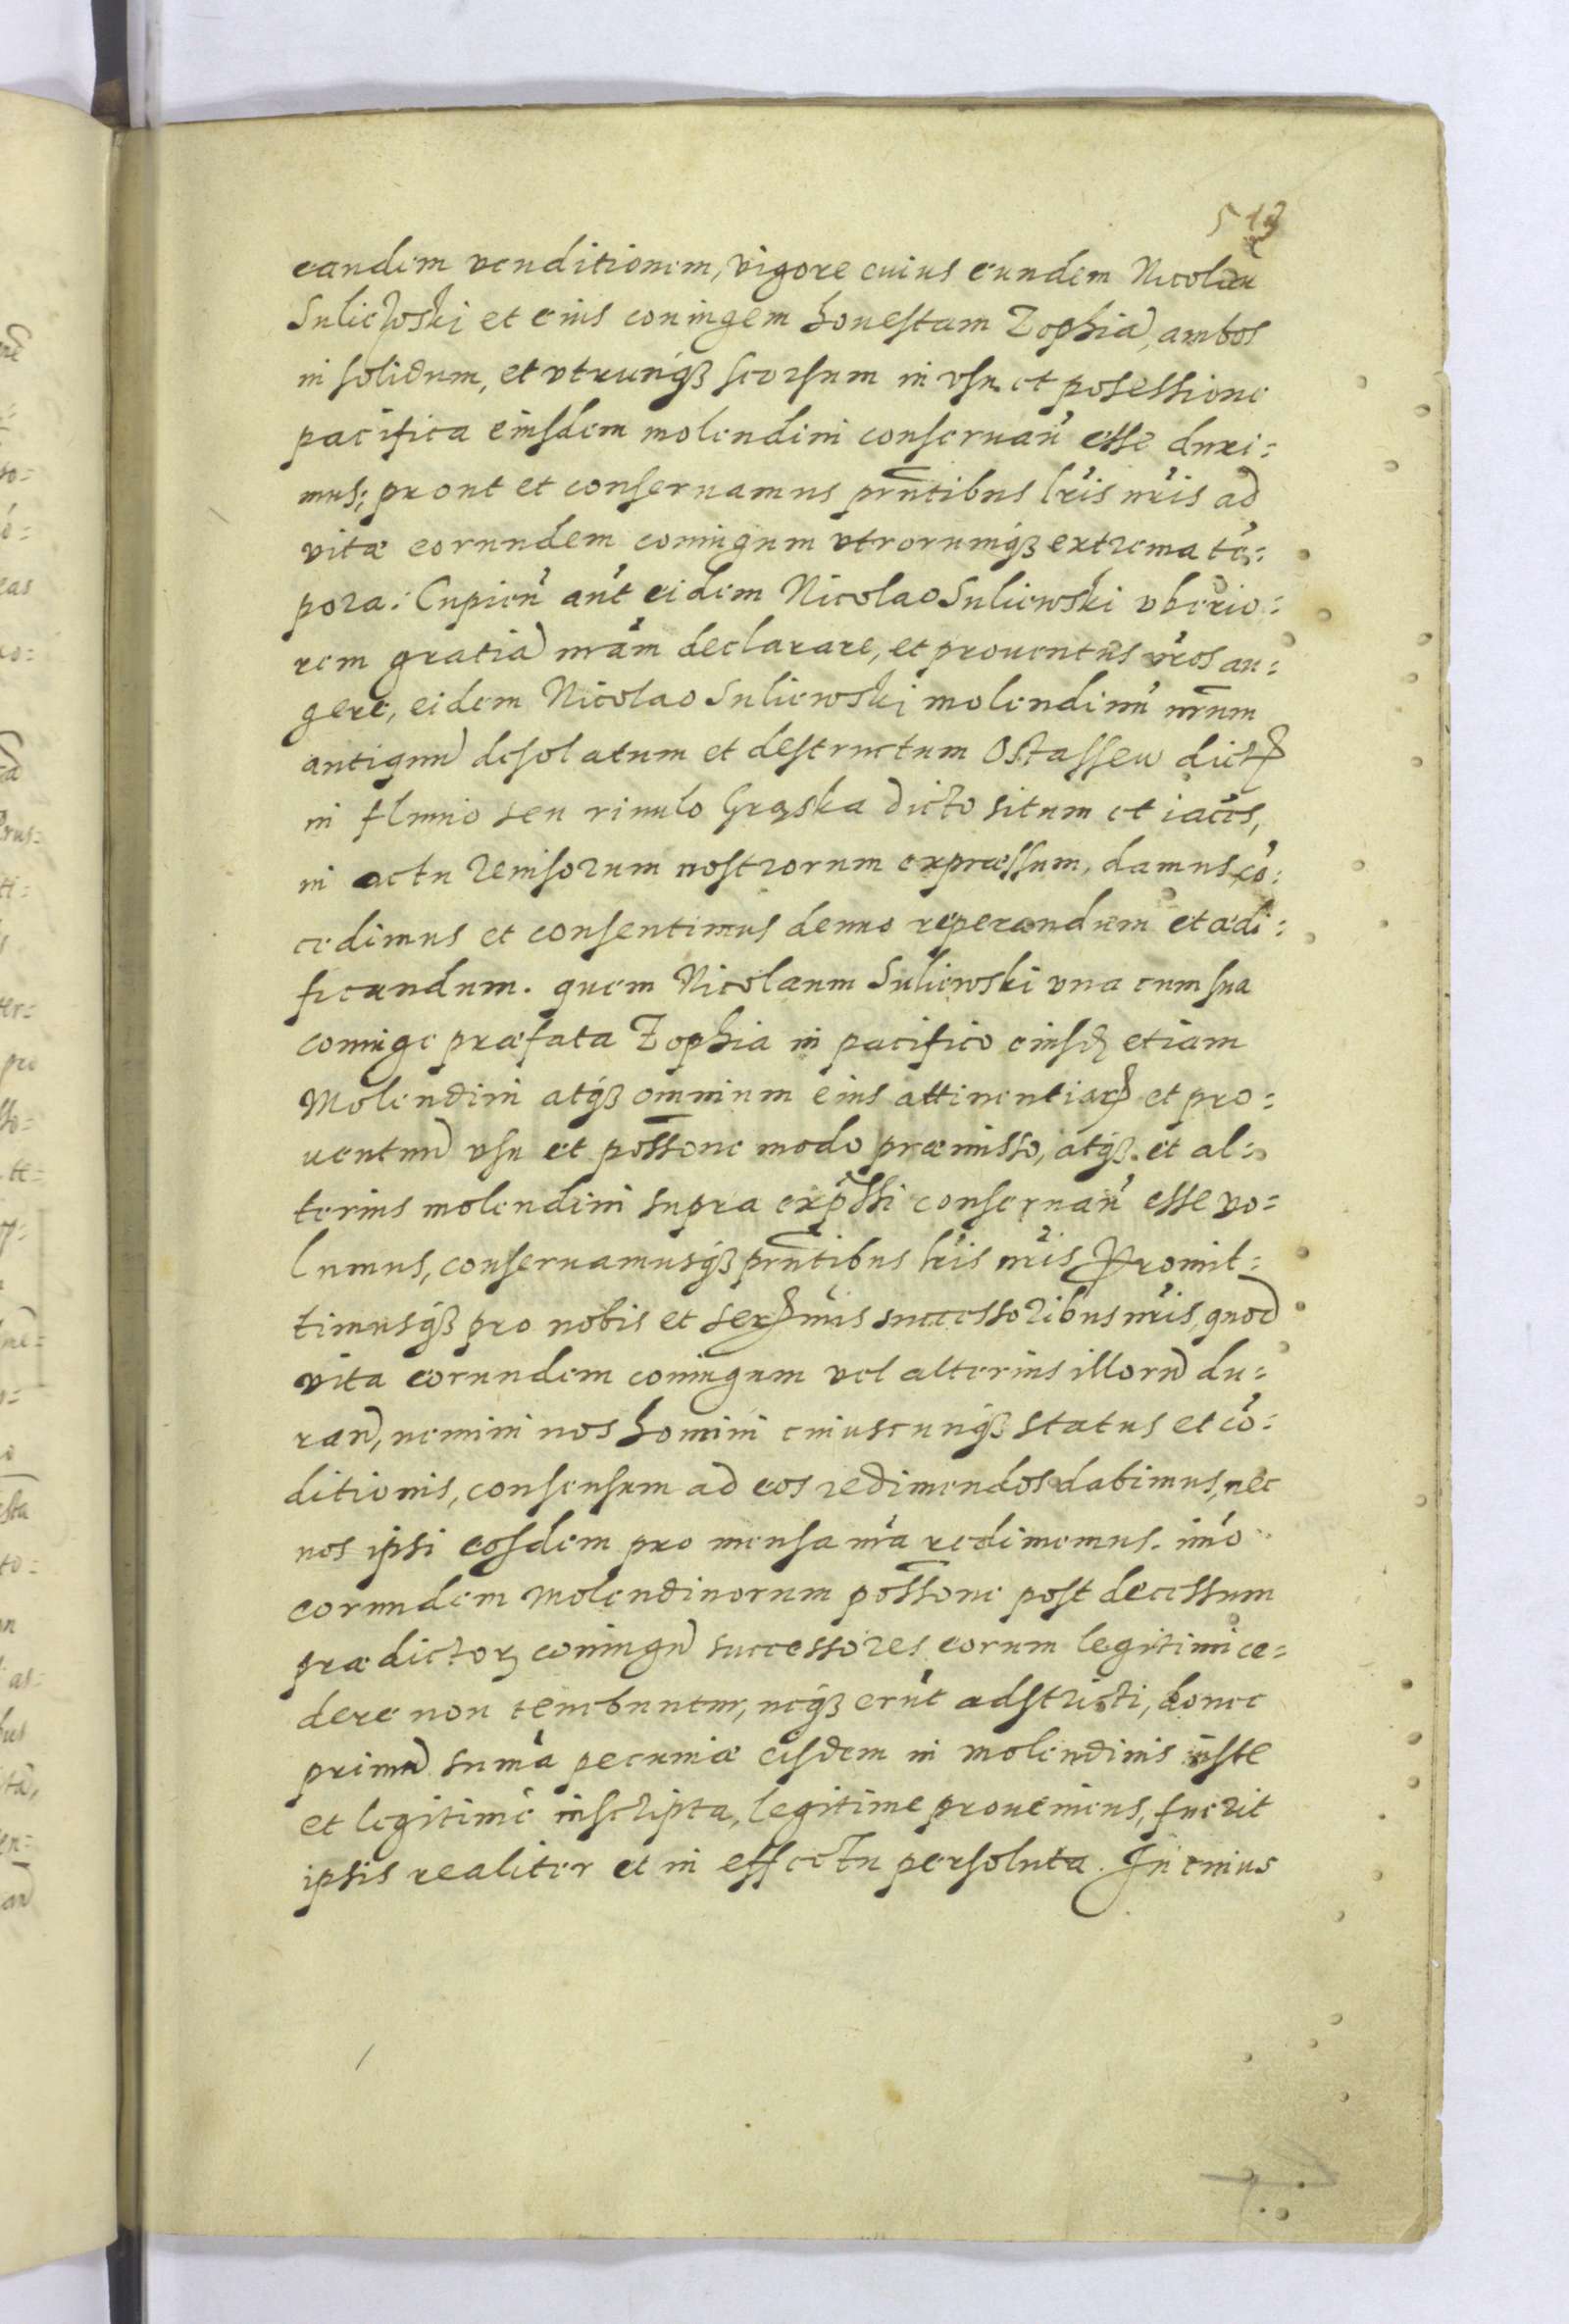 513
eandem venditionem, vigore cuius eundem Nicolaū
Suliewski et eius coniugem honestam Zophiā, ambos
in solidum, et vtrunq₃ seorsum in vsu et posessione
pacifica eiusdem molendini conseruañ esse duxi:
mus; prout et conseruamus pñtibus lr̃is nr̃is ad
vitæ eorundem coniugum vtrorumq₃ extrema tē:
pora: Cupieñ aũt eidem Nicolao Suliewski vberio:
rem gratiā nr̃am declarare, et prouentus vr̃os au:
gere, eidem Nicolao Suliewski molendinũ nr̃um
antiquū desolatum et destructum Ostassew dictū
in fluuio seu riuulo Grąska dicto situm et iaceñs,
in actu reuisorum nostrorum expræssum, damus cō:
cedimus et consentimus denuo reperandum et ædi:
ficandum. quem Nicolaum Suliewski vna cum sua
coniuge præfata Zophia in pacifico eiusdē etiam
Molendini atq₃ omnium eius attinentiarū et pro:
uentuū vsu et possōne modo præmisso, atq₃ et al:
terius molendini supra exp̃ssi conseruañ esse vo:
lumus, conseruamusq₃ pñtibus lr̃is nr̃is Promit:
timusq₃ pro nobis et serᵐⁱˢ successoribus nr̃is, quod
vita eorundem coniugum vel alterius illorū du:
rañ, nemini nos homini cuiuscunq₃ status et cō:
ditionis, consensum ad eos redimendos dabimus, nec
nos ipsi eosdem pro mensa nr̃a redimemus. imō
eorundem Molendinorum possōne post decessum
prædictorꝝ coniugū successores eorum legitimi ce:
dere non tenebuntur, neq₃ erũt adstricti, donec
primū summa pecuniæ eisdem in molendinis iuste
et legitimè inscripta, legitime proueniens, fuerit
ipsis realiter et in effectu persoluta. In cuius